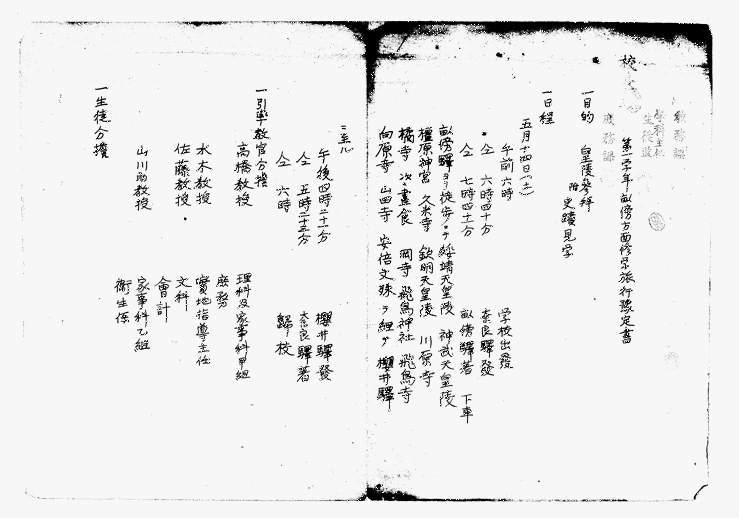 第一学年畝傍方面修学旅行豫定書
一目的　皇陵參拜
附　史蹟見学
一日程
五月十四日(土)
午前六時　学校出發
仝　六時四十分　奈良驛發
仝　七時四十五分　畝傍驛着　下車
畝傍驛ヨリ徒歩ニテ綏靖天皇陵　神武天皇陵
橿原神宮　久米寺　欽明天皇陵　川原寺
橘寺　次、晝食　岡寺　飛鳥神社　飛鳥寺
向原寺　山田寺　安倍文殊ヲ經テ櫻井驛
ニ至ル
午後四時二十一分　櫻井驛發
仝　五時二十三分　奈良驛着
仝　六時　歸校
一引率教官分擔
高橋教授　理科及家事科甲組
庶務
水木教授　實地指導主任
佐藤教授　文科
會計
山川助教授　家事科乙組
衛生係
一生徒分擔